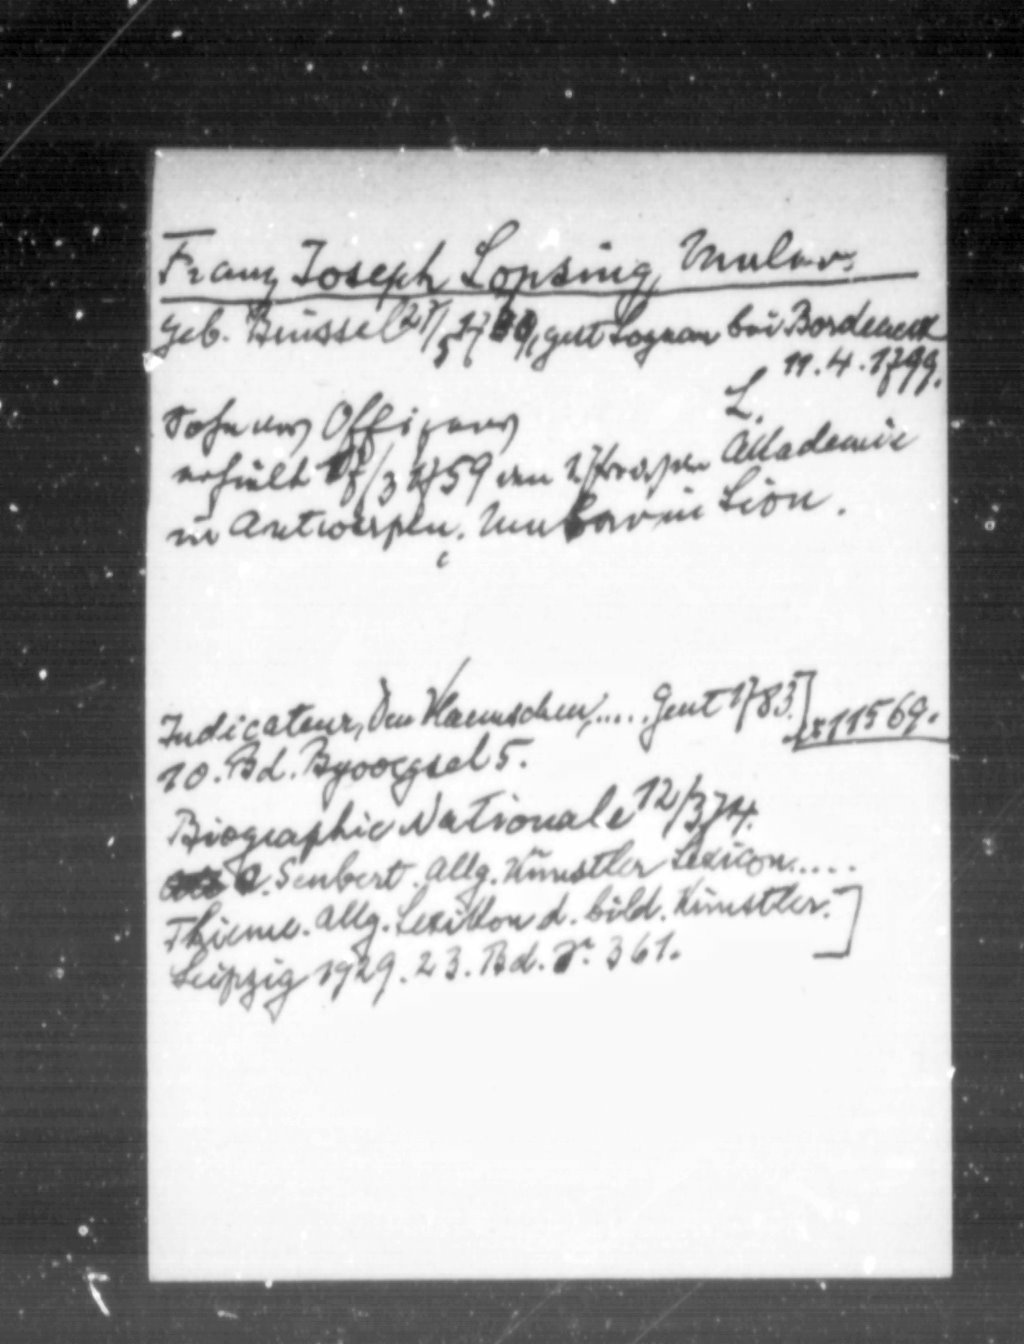 Franz Joseph Lonsing, Maler.
geb. Brüssel 27/5 1739, gest Lognan bei Bordeaux
11. 4. 1799.
L.
Sohn eines Offiziers
erhielt 17/3 1759 den I Preis der Akademie
in Antwerpen. Maler in Lion.
Indicateur, Den Vlaemschen, ..... Gent 1783.] x 11569.
10. Bd. Byvoegsel 5.
Biographie Nationale 12/374.
A. Seubert. Allg. Künstler Lexicon.....
Thieme. Allg. Lexikon d. bild. Künstler.]
Leipzig 1929. 23. Bd. S. 361.